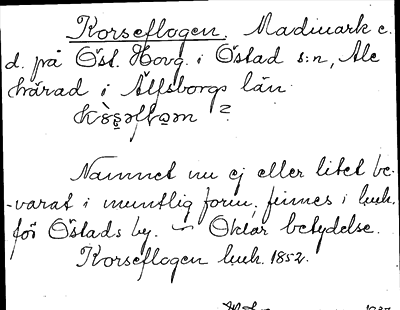 Korseflogen. Madmark e.
d. på Öst. Hovg. i Östad s:n, Ale
härad i Älfsborgs län.
?
Namnet nu ej eller litet be-
-varat i muntlig form, finnes i huk.
för Östads by. — Oklar betydelse.
Korseflogen huk. 1852.